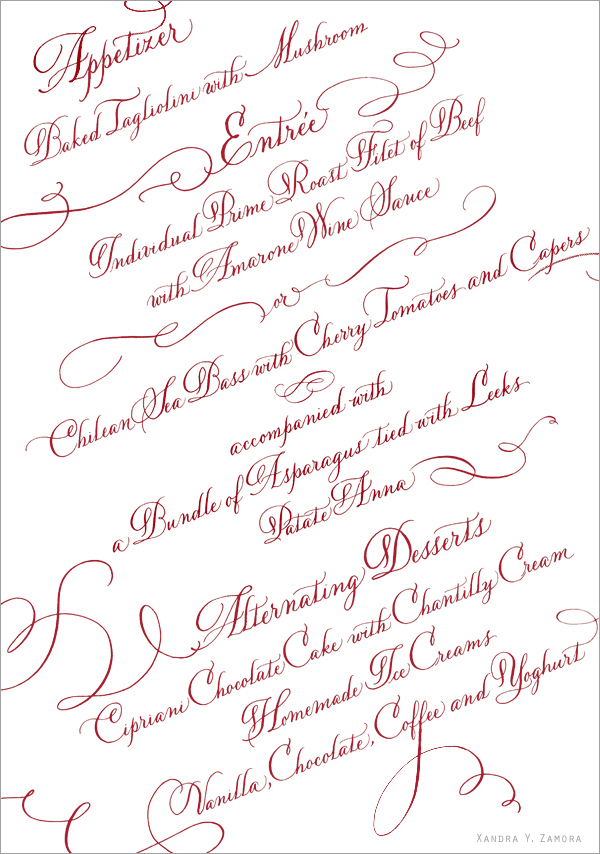 Appetizer
Baked Tagliolini with Mushroom
Entrée
Individual Prime Roast Filet of Beef
with Amarone Wine Sauce
or
Chilean Sea Bass with Cherry Tomatoes and Capers
accompanied with
a Bundle of Asparagus tied with Leeks
Patate Anna
Alternating Desserts
Cipriani Chocolate Cake with Chantilly Cream
Homemade Ice Creams
Vanilla, Chocolate, Coffee and Yoghurt
Xandra Y. Zamora